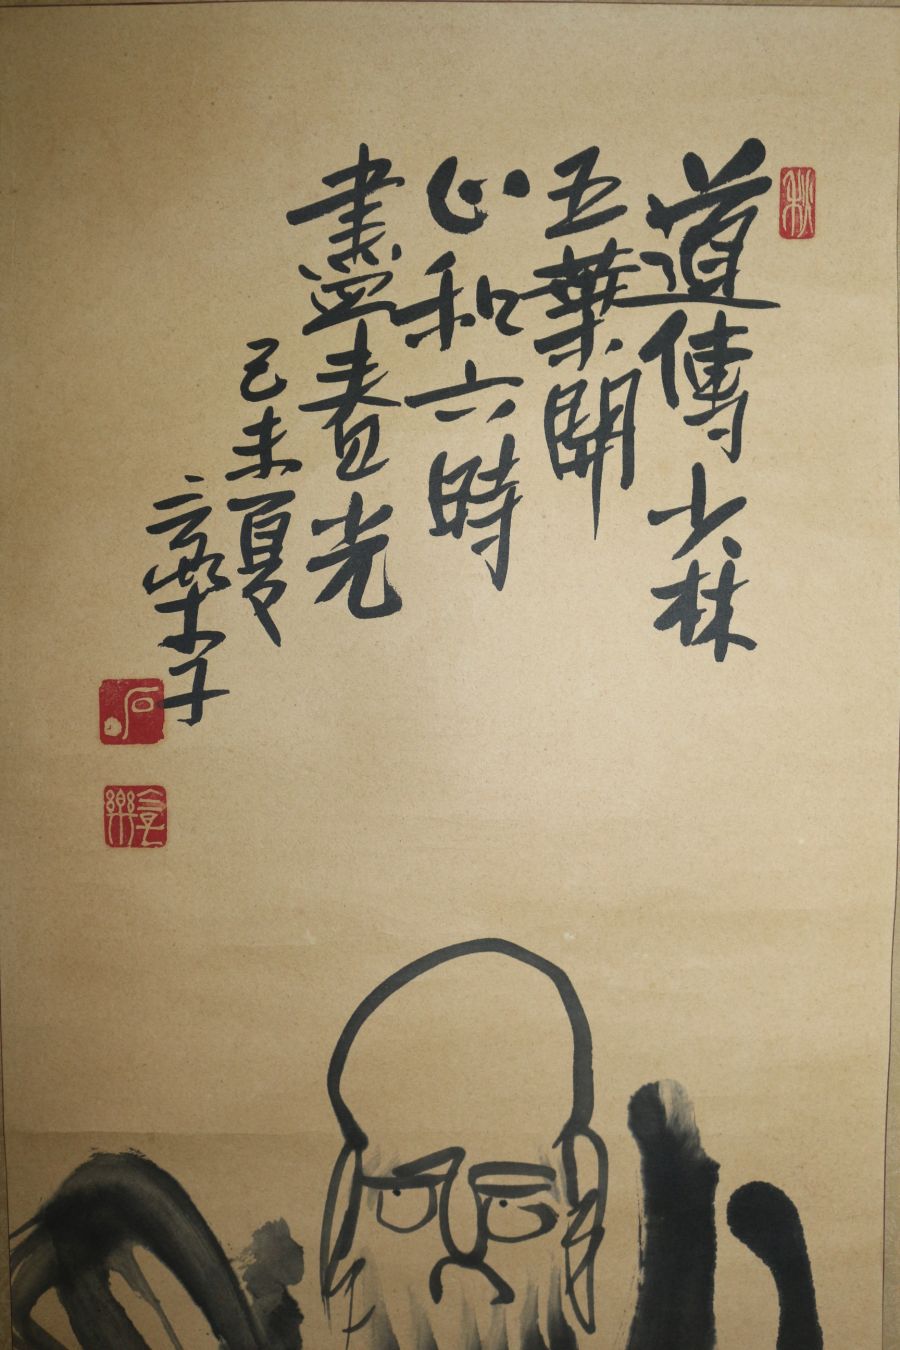 道傳少林
五葉開
心和六時
盡春光
己未夏
樂子
秋
石